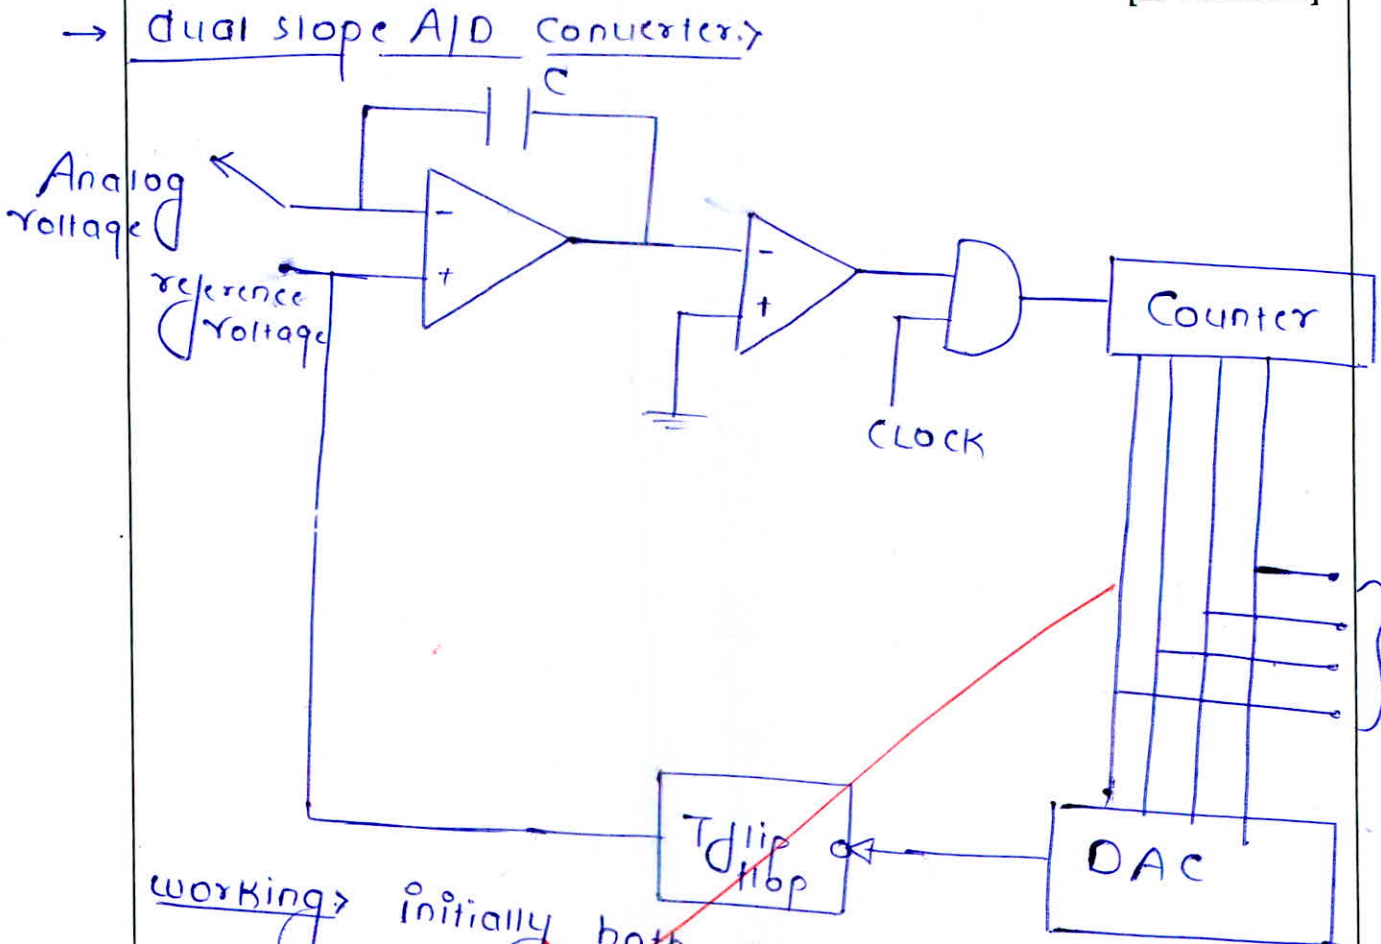 → dual slope A/D Converter:>
C
Analog
voltage
reference
voltage
-
+
-
+
CLOCK
Counter
T flip
flop
DAC
working:> initially both